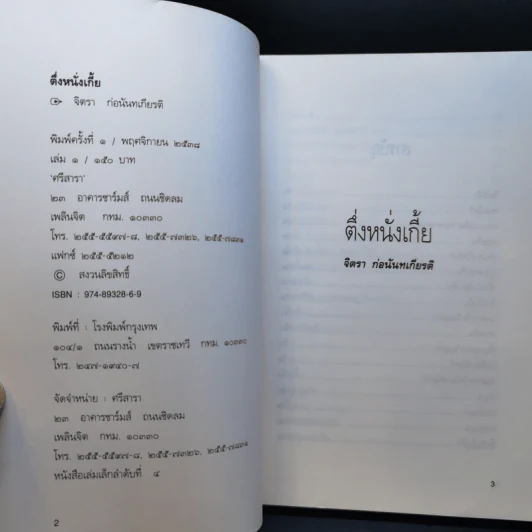 ตึ่งหนั่งเกี้ย
จิตรา ก่อนันทเกียรติ
พิมพ์ครั้งที่ ๑ / พฤศจิกายน ๒๕๓๘
เล่ม ๑ / ๑๕๐ บาท
'ศรีสารา'
๒๓ อาคารชาร์มส์ ถนนชิดลม
เพลินจิต กทม. ๑๐๓๓๐
โทร. ๒๕๕-๕๕๙๗-๘, ๒๕๕-๗๓๒๖, ๒๕๕-๗๘๓๑
แฟกซ์ ๒๕๕-๕๒๑๒
© สงวนลิขสิทธิ์
ISBN : 974-89328-6-9
พิมพ์ที่ : โรงพิมพ์กรุงเทพ
๑๐๔/๑ ถนนรางน้ำ เขตราชเทวี กทม. ๑๐๓๓๐
โทร. ๒๔๗-๑๙๔๐-๗
จัดจำหน่าย : ศรีสารา
๒๓ อาคารชาร์มส์ ถนนชิดลม
เพลินจิต กทม. ๑๐๓๓๐
โทร. ๒๕๕-๕๕๙๗-๘, ๒๕๕-๗๓๒๖, ๒๕๕-๗๘๓๑
หนังสือเล่มเล็กลำดับที่ ๔
2
ตึ่งหนั่งเกี้ย
จิตรา ก่อนันทเกียรติ
3